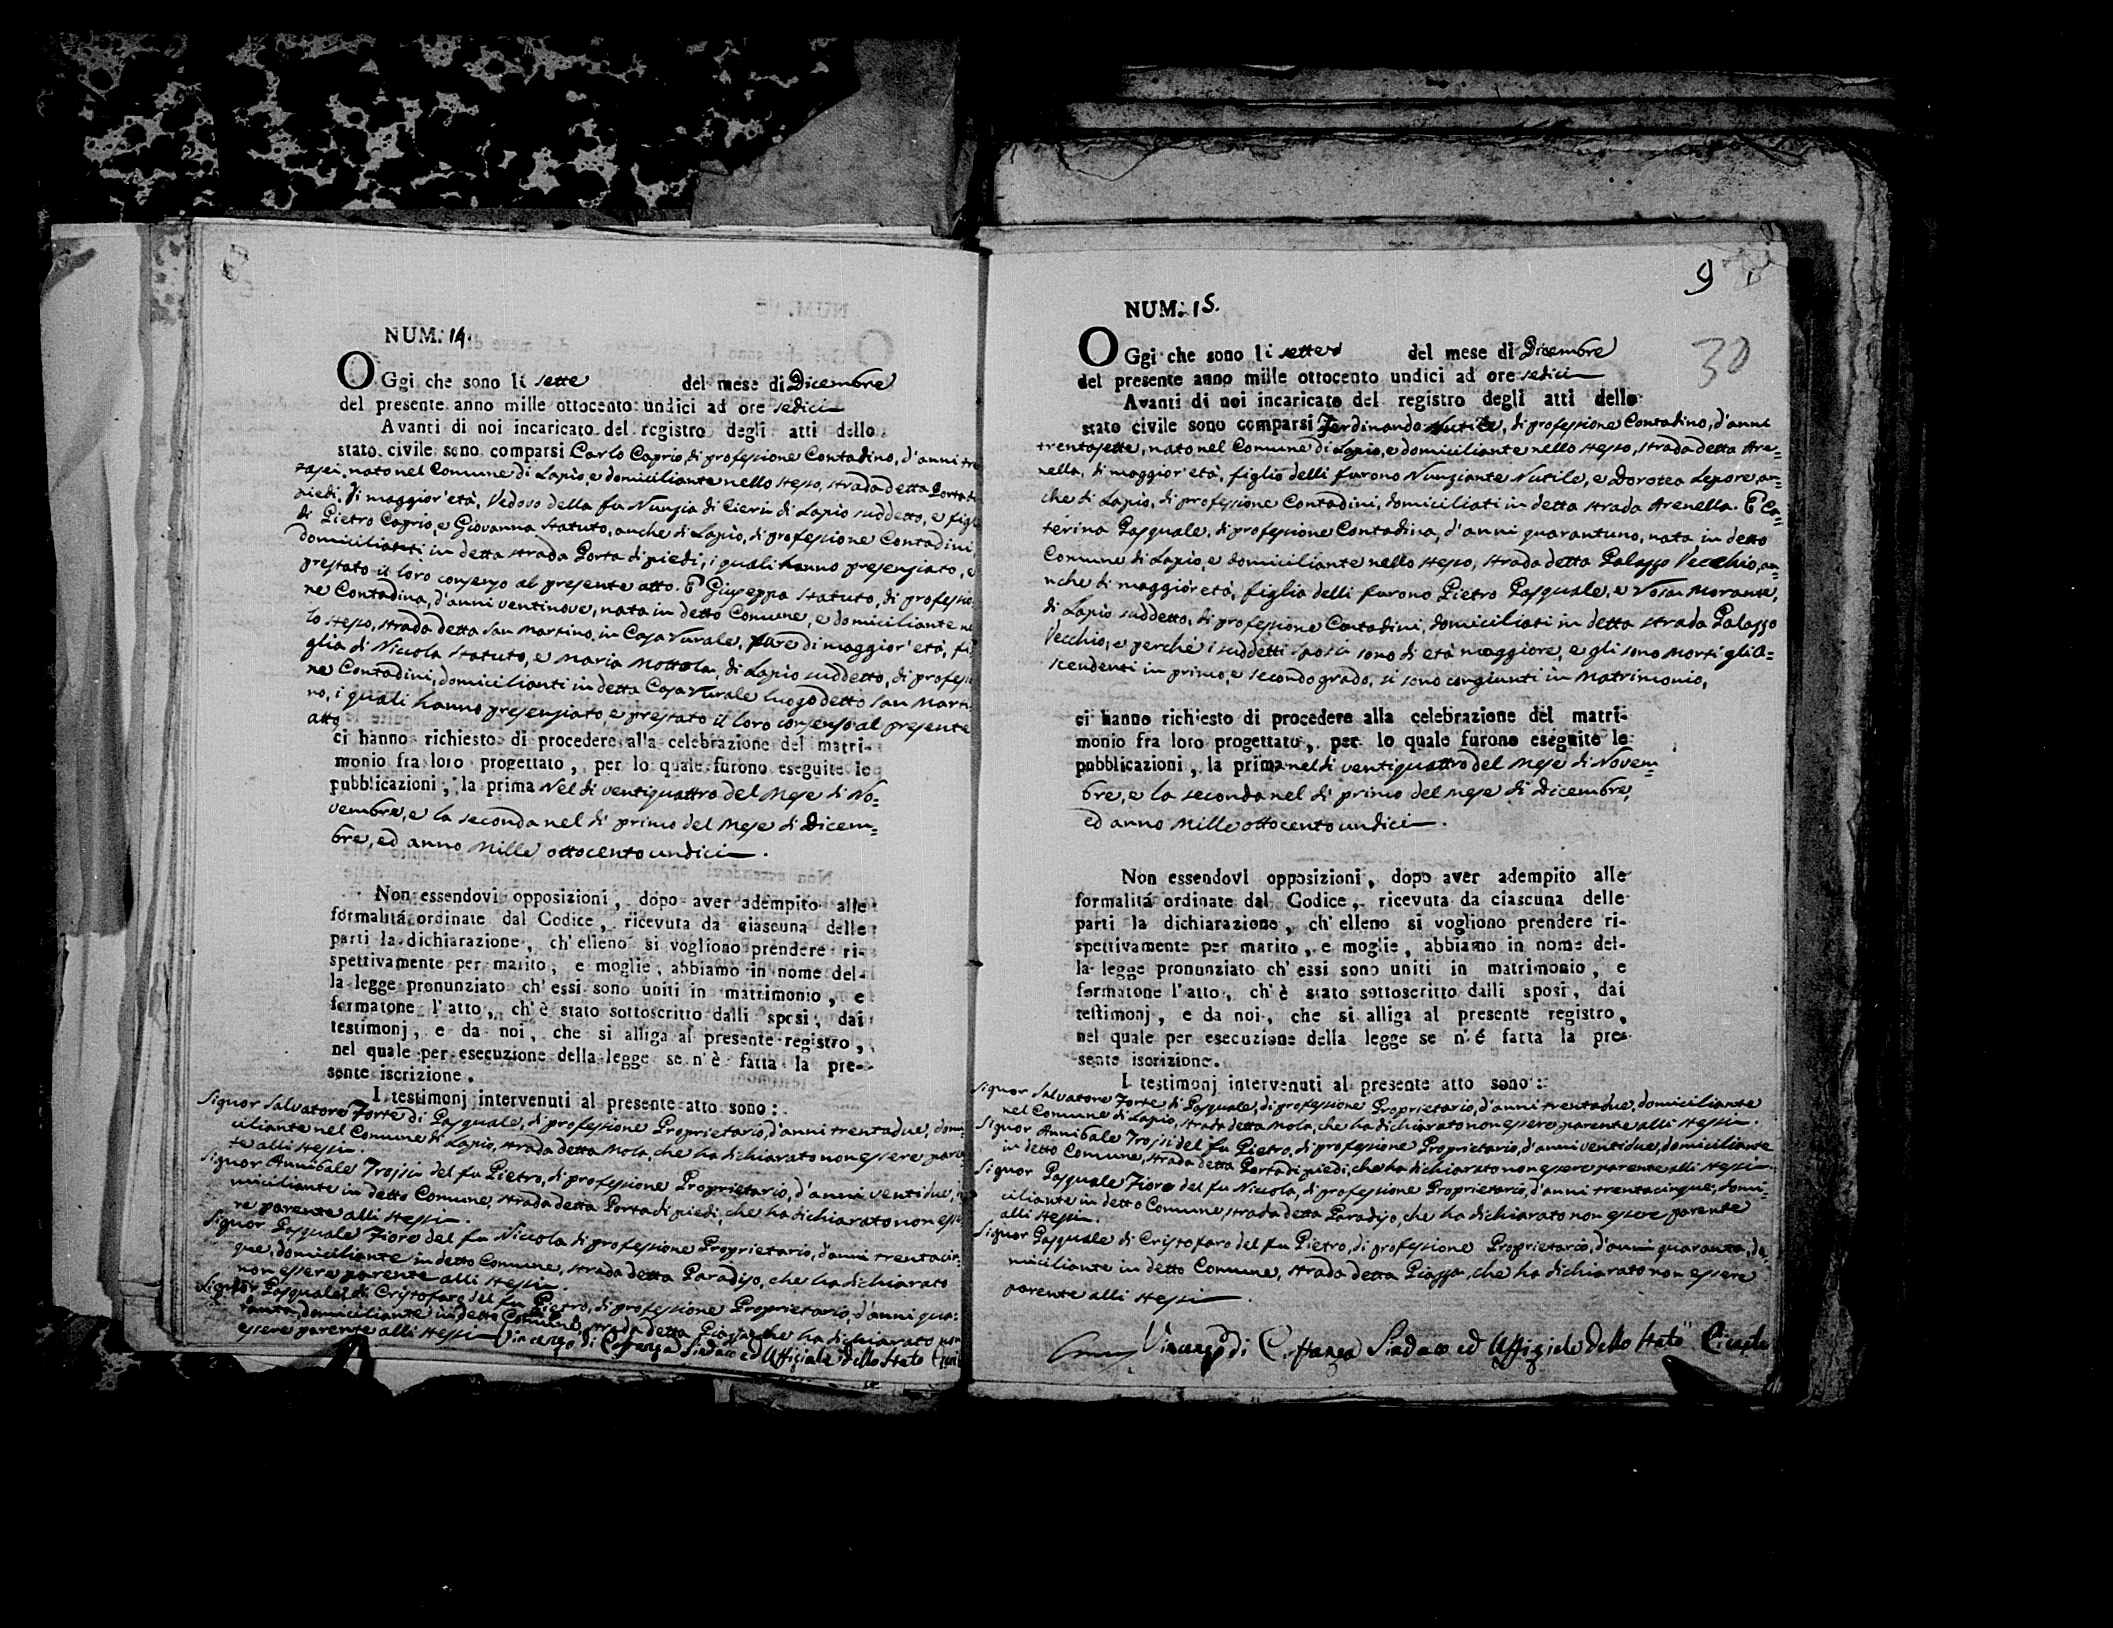 NUM. 14.
OGgi che sono li sette del mese di Dicembre
del presente anno mille ottocento undici ad ore sedici
Avanti di noi incaricato del registro degli atti dello
stato civile sono comparsi Carlo Caprio, di professione Contadino, d'anni tren
tasei, nato nel Comune di Lapio, e domiciliante nello stesso, strada detta Porta di
piedi, di maggior'età, Vedovo della fu Nunzia di Cierio di Lapio suddetto, e figlio
di Pietro Caprio, e Giovanna Statuto, anche di Lapio, di professione Contadini
domicilianti in detta strada Porta di piedi, i quali hanno presenziato, e
prestato il loro consenso al presente atto. E Giuseppa Statuto, di professio
ne Contadina, d'anni ventinove, nata in detto Comune, e domiciliante nel
lo stesso, strada detta San Martino, in Casa rurale, pure di maggior'età, fi
glia di Nicola Statuto, e Maria Mottola, di Lapio suddetto, di professio
ne Contadini, domicilianti in detta Casa rurale luogo detto San Marti
no, i quali hanno presenziato e prestato il loro consenso al presente
atto
ci hanno richiesto di procedere alla celebrazione del matri-
monio fra loro progettato, per lo quale furono eseguite le
pubblicazioni, la prima Nel dì ventiquattro del Mese di No=
vembre, e la seconda nel dì primo del Mese di Dicem=
bre, ed anno Mille ottocento undici.
Non essendovi opposizioni, dopo aver adempito alle
formalitá ordinate dal Codice, ricevuta da ciascuna delle
parti la dichiarazione, ch'elleno si vogliono prendere ri-
spettivamente per marito, e moglie, abbiamo in nome del-
la legge pronunziato ch'essi sono uniti in matrimonio, e
formatone l'atto, ch'è stato sottoscritto dalli sposi, dai
testimonj, e da noi, che si alliga al presente registro,
nel quale per esecuzione della legge se n'è fatta la pre-
sente iscrizione.
I testimonj intervenuti al presente atto sono:
Signor Salvatore Forte di Pasquale, di professione Proprietario, d'anni trentadue, domi=
ciliante nel Comune di Lapio, strada detta Mola, che ha dichiarato non essere paren
te alli stessi.
Signor Annibale Troisi del fu Pietro, di professione Proprietario, d'anni ventidue, do
miciliante in detto Comune, strada detta Porta di piedi, che ha dichiarato non esse
re parente alli stessi.
Signor Pasquale Fiore del fu Nicola di professione Proprietario, d'anni trentacin=
que, domiciliante in detto Comune, strada detta Paradiso, che ha dichiarato
non essere parente alli stessi.
Signor Pasquale di Cristofaro del fu Pietro, di professione Proprietario, d'anni qua=
ranta, domiciliante in detto Comune, strada detta Piazza, che ha dichiarato non
essere parente alli stessi Vincenzo di Sindaco ed Uffiziale dello Stato Civile
9
30
NUM. 15.
OGgi che sono li sette del mese di Dicembre
del presente anno mille ottocento undici ad ore sedici
Avanti di noi incaricato del registro degli atti dello
stato civile sono comparsi Ferdinando Nutile, di professione Contadino, d'anni
trentasette, nato nel Comune di Lapio, e domiciliante nello stesso, strada detta Are=
nella, di maggior'età, figlio delli furono Nunziante Nutile, e Dorotea Lepore, an=
che di Lapio, di professione Contadini, domiciliati in detta strada Arenella. E Ca=
terina Pasquale, di professione Contadina, d'anni quarantuno, nata in detto
Comune di Lapio, e domiciliante nello stesso, strada detta Palazzo Vecchio, an=
nche di maggior età, figlia delli furono Pietro Pasquale, e Rosa Morante,
di Lapio suddetto, di professione Contadini, domiciliati in detta strada Palazzo
Vecchio, e perché i suddetti sposi sono di età maggiore, e gli sono morti gli a=
scendenti in primo, e secondo grado, si sono congiunti in Matrimonio,
ci hanno richiesto di procedere alla celebrazione del matri-
monio fra loro progettato, per lo quale furono eseguite le
pubblicazioni, la prima nel dì ventiquattro del Mese di Novem=
bre, e la seconda nel dì primo del Mese di Dicembre,
ed anno Mille ottocento undici.
Non essendovi opposizioni, dopo aver adempito alle
formalitá ordinate dal Codice, ricevuta da ciascuna delle
parti la dichiarazione, ch'elleno si vogliono prendere ri-
spettivamente per marito, e moglie, abbiamo in nome del-
la legge pronunziato ch'essi sono uniti in matrimonio, e
formatone l'atto, ch'è stato sottoscritto dalli sposi, dai
testimonj, e da noi, che si alliga al presente registro,
nel quale per esecuzione della legge se n'é fatta la pre-
sente iscrizione.
I testimonj intervenuti al presente atto sono:
Signor Salvatore Forte di Pasquale, di professione Proprietario, d'anni trentadue, domiciliante
nel Comune di Lapio, strada detta Mola, che ha dichiarato non essere parente alli stessi.
Signor Annibale Troisi del fu Pietro, di professione Proprietario, d'anni ventidue, domiciliante
in detto Comune, strada detta Porta di piedi, che ha dichiarato non essere parente alli stessi.
Signor Pasquale Fiore del fu Nicola, di professione Proprietario, d'anni trentacinque, domi=
ciliante in detto Comune, strada detta Paradiso, che ha dichiarato non essere parente
alli stessi.
Signor Pasquale di Cristofaro del fu Pietro, di professione Proprietario, d'anni quaranta, do=
miciliante in detto Comune, strada detta Piazza, che ha dichiarato non essere
parente alli stessi.
Vincenzo di Sindaco ed Uffiziale dello Stato Civile